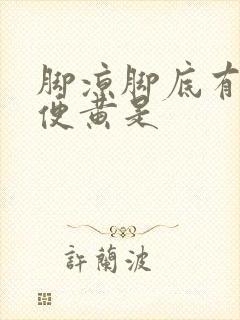 脚凉脚底有
便黄是
許蘭波